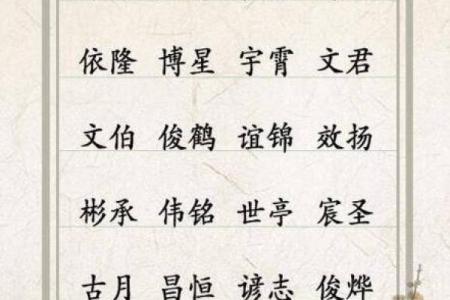 依隆 博星 宇霄 文君
文伯 俊鹤 谊锦 效扬
彬承 伟铭 世亭 宸圣
古月 昌恒 谚志 俊烨